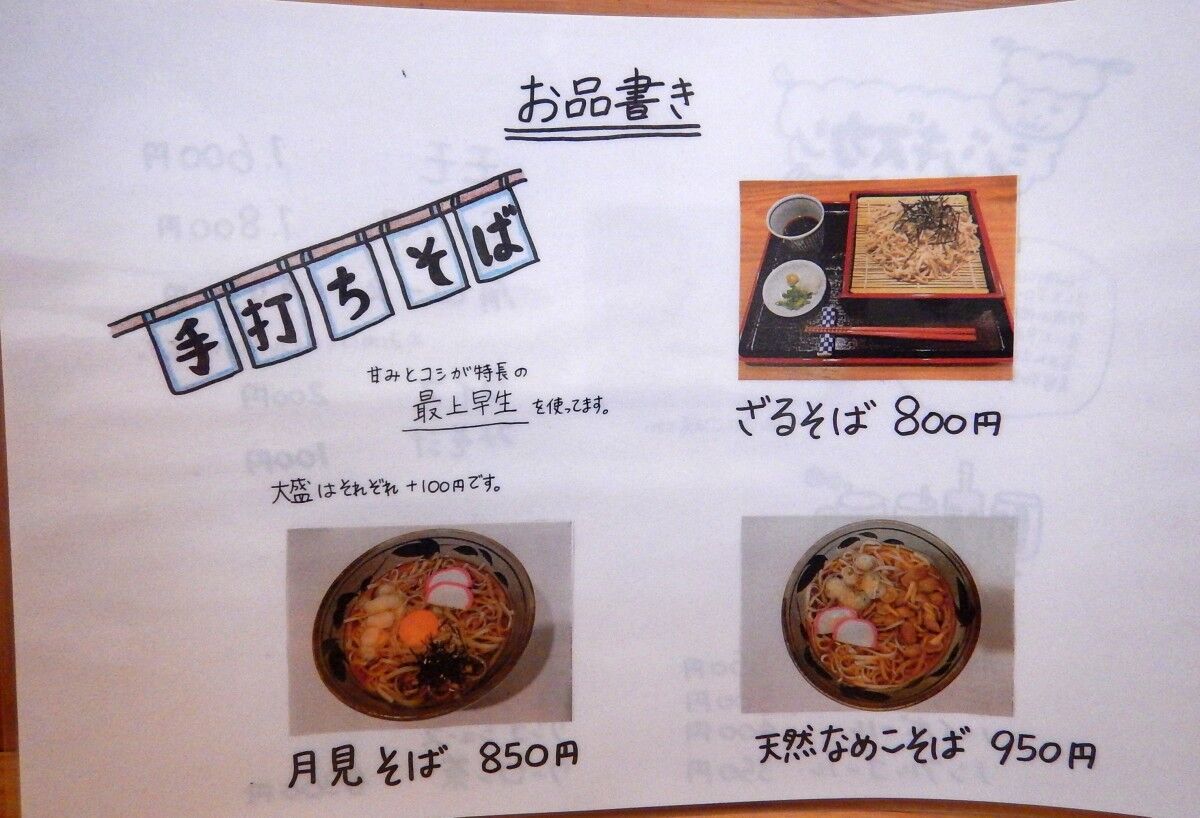 お品書き
手打ちそば
甘みとコシが特長の
最上早生を使ってます。
ざるそば 800円
大盛はそれぞれ+100円です。
月見そば 850円
天然なめこそば 950円